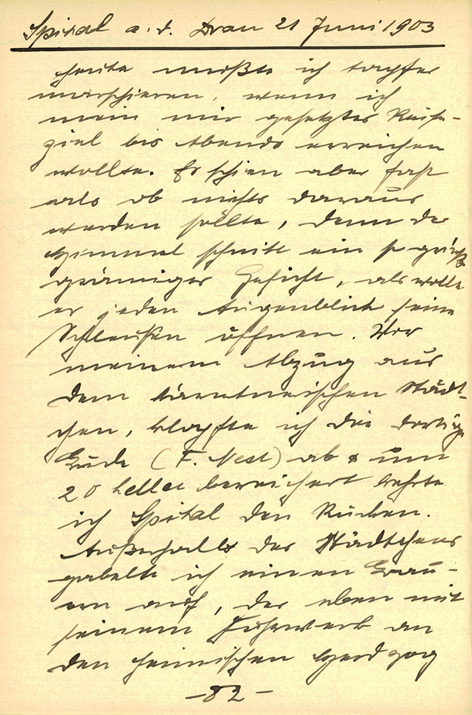 Spital a. d. Drau 21 Juni 1903
Heute mußte ich tapfer
marschieren, wenn ich
mein mir gesetztes Reise-
ziel bis Abends erreichen
wollte. Es schien aber fast
als ob nichts daraus
werden sollte, denn der
Himmel schnitt ein so gries-
grämiges Gesicht, als wollte
er jeden Augenblick seine
Schleußen öffnen. Vor
meinem Abzug aus
dem kärntnerischen Städt-
chen, klopfte ich die dortige
Bude (F. Nest) ab & um
20 Heller bereichert kehrte
ich Spital den Rücken.
Außerhalb des Städtchens
gabelte ich einen Bau-
ern auf, der eben mit
seinem Fuhrwerk an
den heimischen Herd zog
-82-